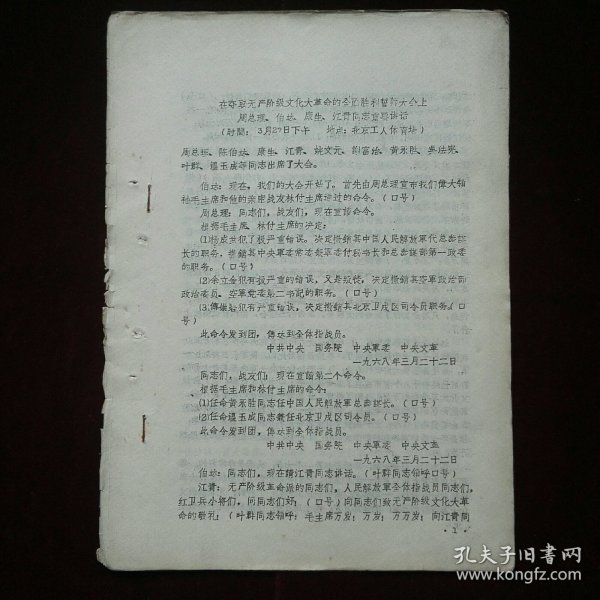 在夺取无产阶级文化大革命的全面胜利誓师大会上
周总理、伯达、康生、江青同志重要讲话
(时间：3月27日下午　地点：北京工人体育场)
周总理、陈伯达、康生、江青、姚文元、谢富治、黄永胜、吴法宪、
叶群、温玉成等同志出席了大会。
伯达：现在，我们的大会开始了。首先由周总理宣布我们伟大领
袖毛主席和他的亲密战友林付主席讲过的命令。(口号)
周总理：同志们，战友们，现在宣读命令。
根据毛主席、林付主席的决定：
⑴杨成武犯了极严重错误。决定撤銷其中国人民解放軍代总参謀
长的职务，撤銷其中央軍委常委兼軍委付秘书长和总参謀部第一政委
的职务。(口号)
⑵余立金犯有极严重的错误，又是叛徒，决定撤銷其空軍政治部
政治委员、空軍党委第二书記的职务。(口号)
⑶傅崇碧犯有严重错误，决定撤銷其北京卫戍区司令员职务。(口
号)
此命令发到团，傳达到全体指战员。
中共中央　国务院　中央軍委　中央文革
一九六八年三月二十二日
同志们，战友们：现在宣讀第二个命令。
根据毛主席和林付主席的命令：
⑴任命黄永胜同志任中国人民解放軍总参謀长。(口号)
⑵任命温玉成同志兼任北京卫戍区司令员。(口号)
此命令发到团，傳达到全体指战员。
中共中央　国务院　中央軍委　中央文革
一九六八年三月二十二日
伯达：同志们，现在請江青同志讲话。(叶群同志领呼口号)
江青：无产阶级革命派的同志们，人民解放軍全体指战员同志们，
红卫兵小将们，问同志们好；(口号)向同志们致无产阶级文化大革
命的敬礼；(叶群同志领呼：毛主席万岁；万岁；万万岁；向江青同
·1·
孔夫子旧书网
www.kongfz.com